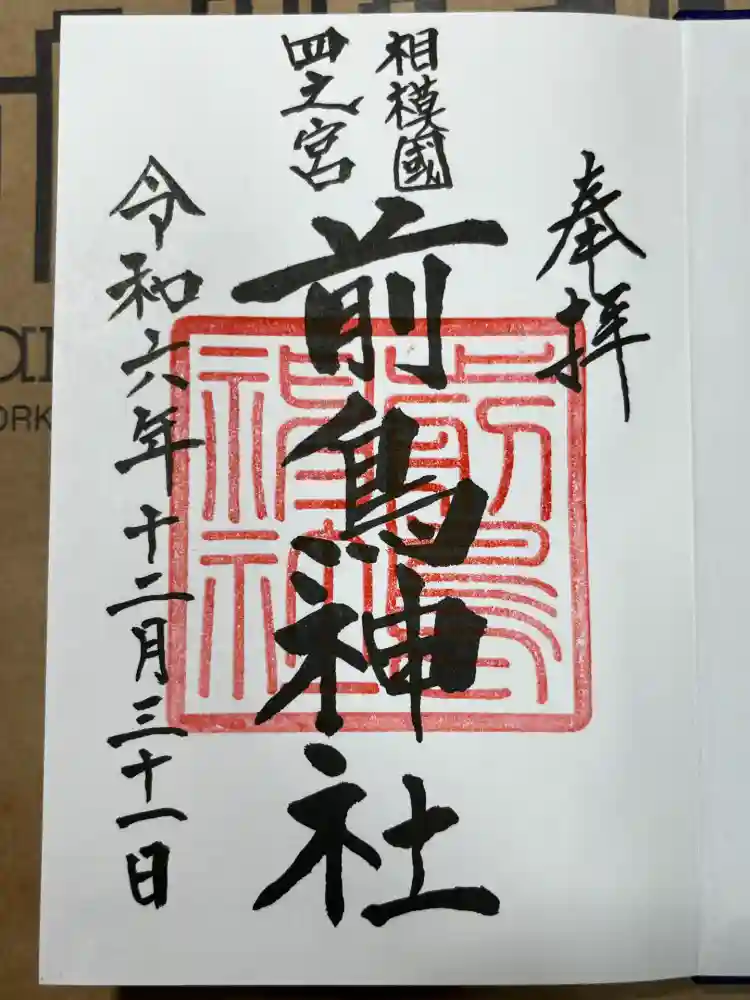 奉拝
相模國
四之宮
前鳥神社
令和六年十二月三十一日